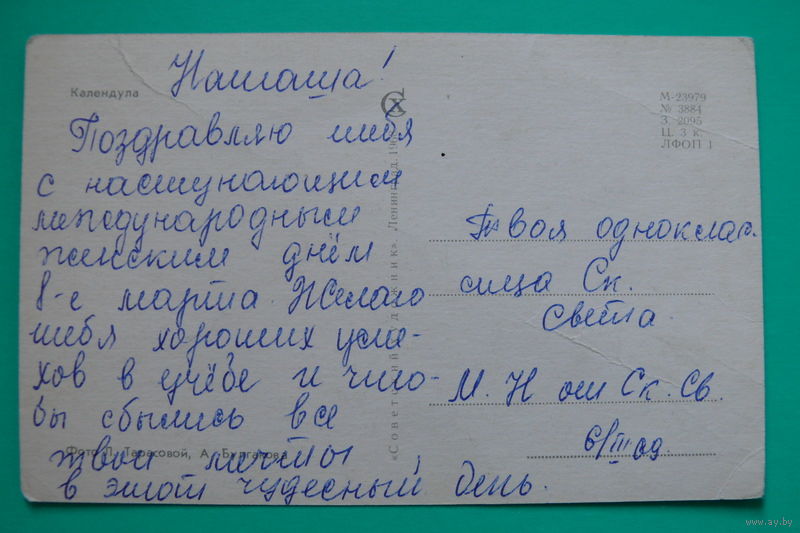 Календула
Наташа!
Поздравляю тебя
с наступающим
международным
женским днём
8-е марта. Желаю
тебя хороших успе-
хов в учёбе и что-
бы сбылись все
твои мечты,
в этот чудесный день.
Фото Л. Тарасовой, А. Булгакова
СХ
«Советский художник». Ленинград. 19
М-23979
№ 3884
З. 2095
Ц. 3 к.
ЛФОП 1
Твоя одноклас.
сица Ск.
Света.
М. Н от Ск. Св.
6/III
www.ay.by